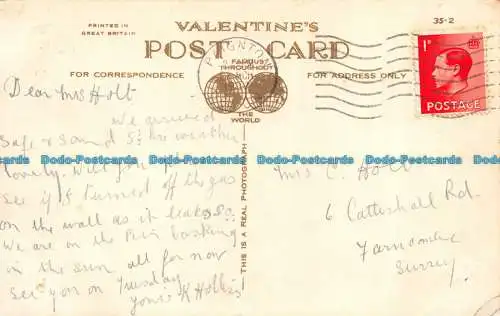 PRINTED IN
GREAT BRITAIN
VALENTINE'S
35-2
POST CARD
PAIGNTON
FAMOUS
THROUGHOUT
THE
WORLD
FOR CORRESPONDENCE
FOR ADDRESS ONLY
THIS IS A REAL PHOTOGRAPH
1D
POSTAGE
Dear Mrs Holt
We arrived
safe & sound 5.30 weather
lovely. Will you
see if I turned off the gas
on the wall as it leaks so.
We are on the Pier basking
in the sun all for now
see you on Tuesday
yours K Hollis
Mrs C. Holt
6 Catteshall Rd.
Farncombe
Surrey
Dodo-Postcards Dodo-Postcards Dodo-Postcards Dodo-Postcards
Dodo-Postcards Dodo-Postcards Dodo-Postcards
Dodo-Postcards Dodo-Postcards Dodo-Postcards Dodo-Postcards